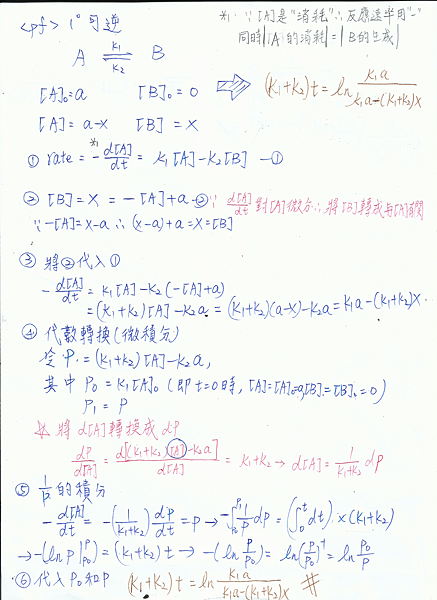 <pf> 1° 可逆
*1. ∵ [A]是"消耗" ∴ 反應速率用"-"
同時|[A]的消耗| = |B的生成|
A ⇌ B
K₁
K₂
[A]₀ = a [B]₀ = 0 ⇒ (K₁+K₂)t = ln K₁a / K₁a-(K₁+K₂)X
[A] = a-x [B] = X
① rate = *1 - d[A]/dt = K₁[A]-K₂[B] —①
② [B] = X = -[A]+a —② ∵ d[A]/dt 對[A]微分 ∴ 將[B]轉成與[A]有關
∵ -[A] = X-a ∴ (x-a)+a = X = [B]
③ 將②代入①
- d[A]/dt = K₁[A]-K₂(-[A]+a)
= (K₁+K₂)[A]-K₂a = (K₁+K₂)(a-X)-K₂a = K₁a-(K₁+K₂)X
④ 代數轉換(微積分)
令P = (K₁+K₂)[A]-K₂a,
其中 P₀ = K₁[A]₀ (即t=0時, [A]=[A]₀=a, [B]=[B]₀=0)
P₁ = P
將d[A]轉換成dP
dP/d[A] = d[(K₁+K₂)[A]-K₂a]/d[A] = K₁+K₂ → d[A] = 1/K₁+K₂ dP
⑤ 1/P 的積分
- d[A]/dt = -(1/K₁+K₂) dP/dt = P → -∫P₀P₁ 1/P dP = (∫₀ᵗdt) × (K₁+K₂)
→ -(ln P|P₀P) = (K₁+K₂)t → -(ln P/P₀) = ln(P/P₀)⁻¹ = ln P₀/P
⑥ 代入P₀和P (K₁+K₂)t = ln K₁a / K₁a-(K₁+K₂)X #